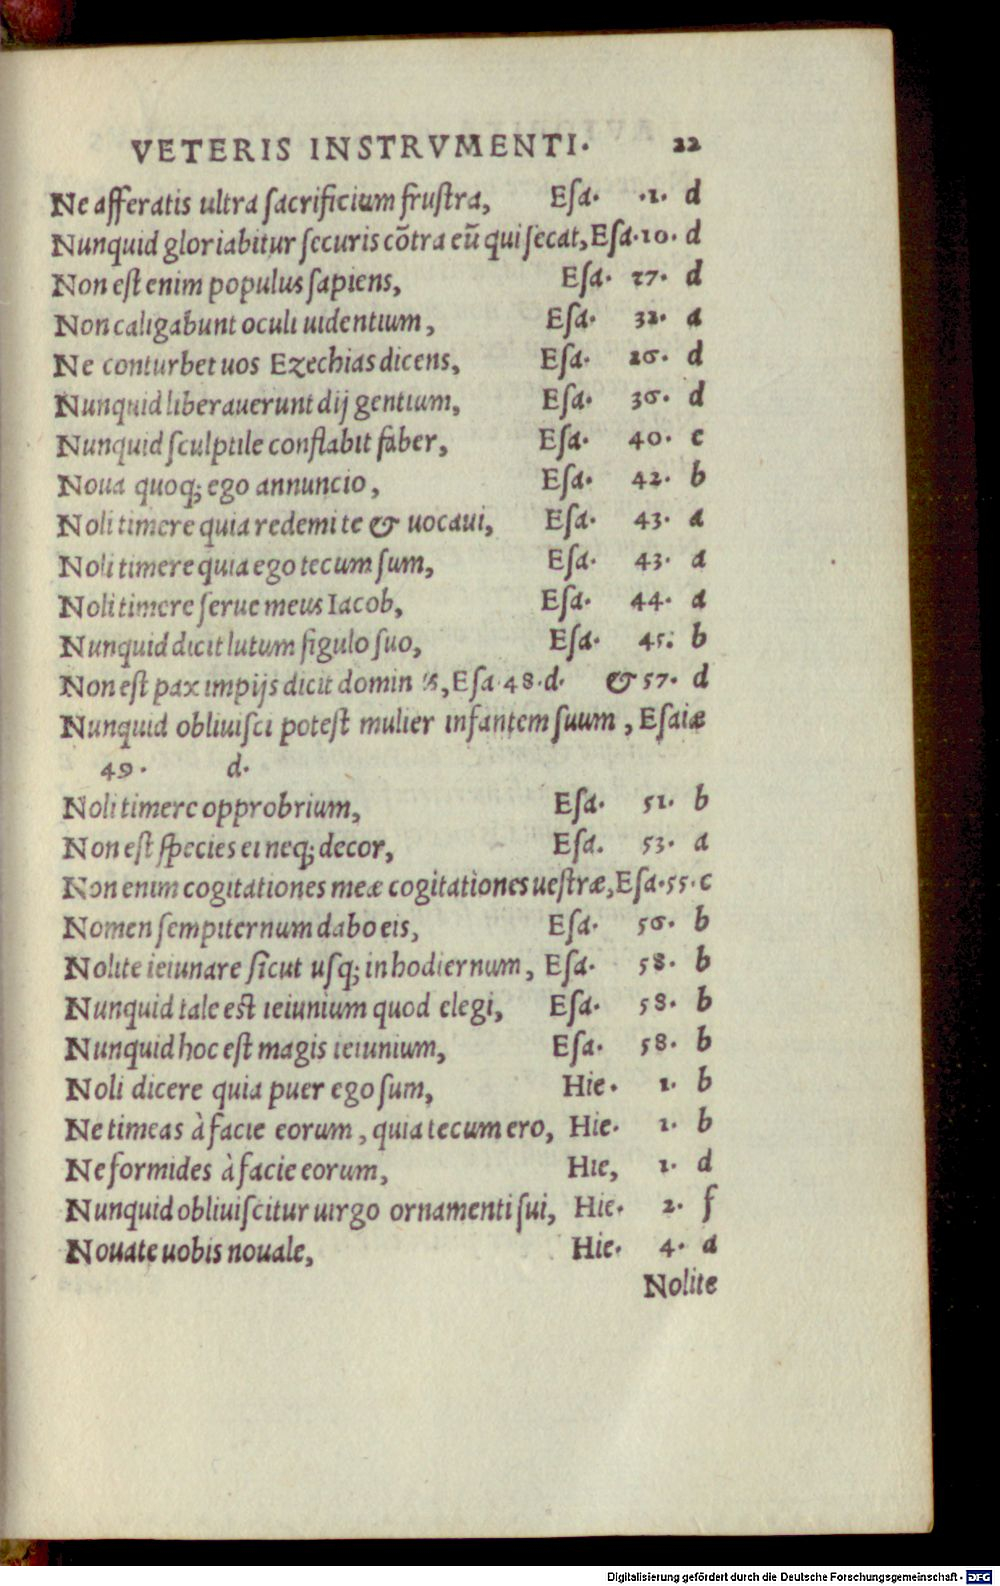 VETERIS INSTRVMENTI. 22
Ne afferatis ultra ſacrificium fruſtra, Eſa. .1. d
Nunquid gloriabitur ſecuris cõtra eũ qui ſecat, Eſa.10. d
Non eſt enim populus ſapiens, Eſa. 27. d
Non caligabunt oculi uidentium, Eſa. 32. a
Ne conturbet uos Ezechias dicens, Eſa. 26. d
Nunquid liberauerunt dij gentium, Eſa. 36. d
Nunquid ſculptile conflabit faber, Eſa. 40. c
Noua quoq; ego annuncio, Eſa. 42. b
Noli timere quia redemi te & uocaui, Eſa. 43. a
Noli timere quia ego tecum ſum, Eſa. 43. a
Noli timere ſerue meus Iacob, Eſa. 44. a
Nunquid dicit lutum figulo ſuo, Eſa. 45. b
Non eſt pax impijs dicit dominus, Eſa.48.d. & 57. d
Nunquid obliuiſci poteſt mulier infantem ſuum, Eſaiæ
49. d.
Noli timere opprobrium, Eſa. 51. b
Non eſt ſpecies ei neq; decor, Eſa. 53. a
Non enim cogitationes meæ cogitationes ueſtræ, Eſa.55. c
Nomen ſempiternum dabo eis, Eſa. 56. b
Nolite ieiunare ſicut uſq; in hodiernum, Eſa. 58. b
Nunquid tale eſt ieiunium quod elegi, Eſa. 58. b
Nunquid hoc eſt magis ieiunium, Eſa. 58. b
Noli dicere quia puer ego ſum, Hie. 1. b
Ne timeas à facie eorum, quia tecum ero, Hie. 1. b
Ne formides à facie eorum, Hie, 1. d
Nunquid obliuiſcitur uirgo ornamenti ſui, Hie. 2. f
Nouate uobis nouale, Hie. 4. a
Nolite
Digitalisierung gefördert durch die Deutsche Forschungsgemeinschaft - DFG